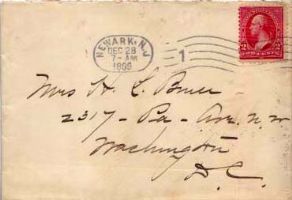 NEWARK, N.J.
DEC 28
7-AM
1899
1
2 2
Mrs H. C. Bruce
2317- Pa- Ave. N. W
Washington
D. C.